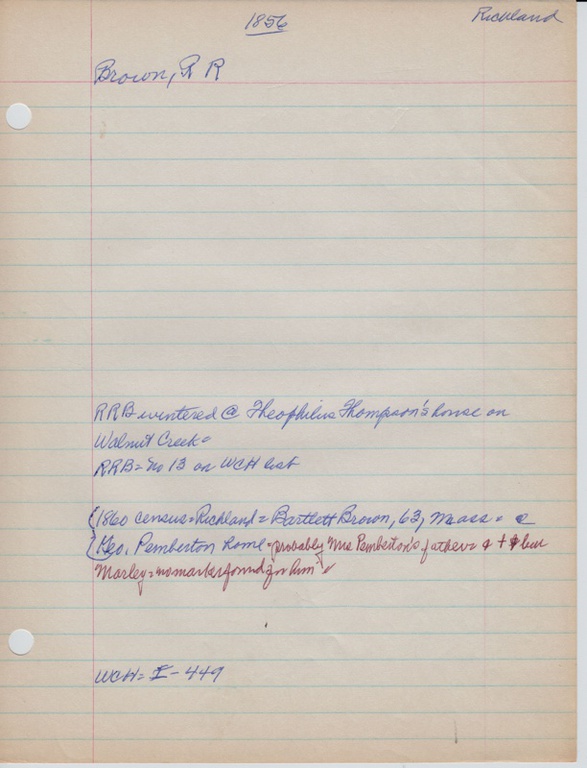 1856
Richland
Brown, R R
RRB wintered @ Theophilus Thompson's house on
Walnut Creek.
RRB = no 13 on WCH list
(1860 census = Richland = Bartlett Brown, 63, Mass. @
Geo. Pemberton home = probably Mrs Pemberton's father = d + bur
Marley = no marker found for him
WCH = I-449